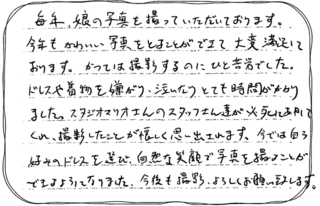 毎年、娘の写真を撮っていただいております。
今年もかわいい写真をとることができて大変満足して
おります。かつては撮影するのにひと苦労でした。
ドレスや着物を嫌がり、泣いたりとても時間がかかり
ました。スタジオマリオさんのスタッフさん達が必死にあやして
くれ、撮影したことが懐しく思い出されます。今では自ら
好みのドレスを選び、自然な笑顔で写真を撮ることが
できるようになりました。今後も撮影、よろしくお願い致します。